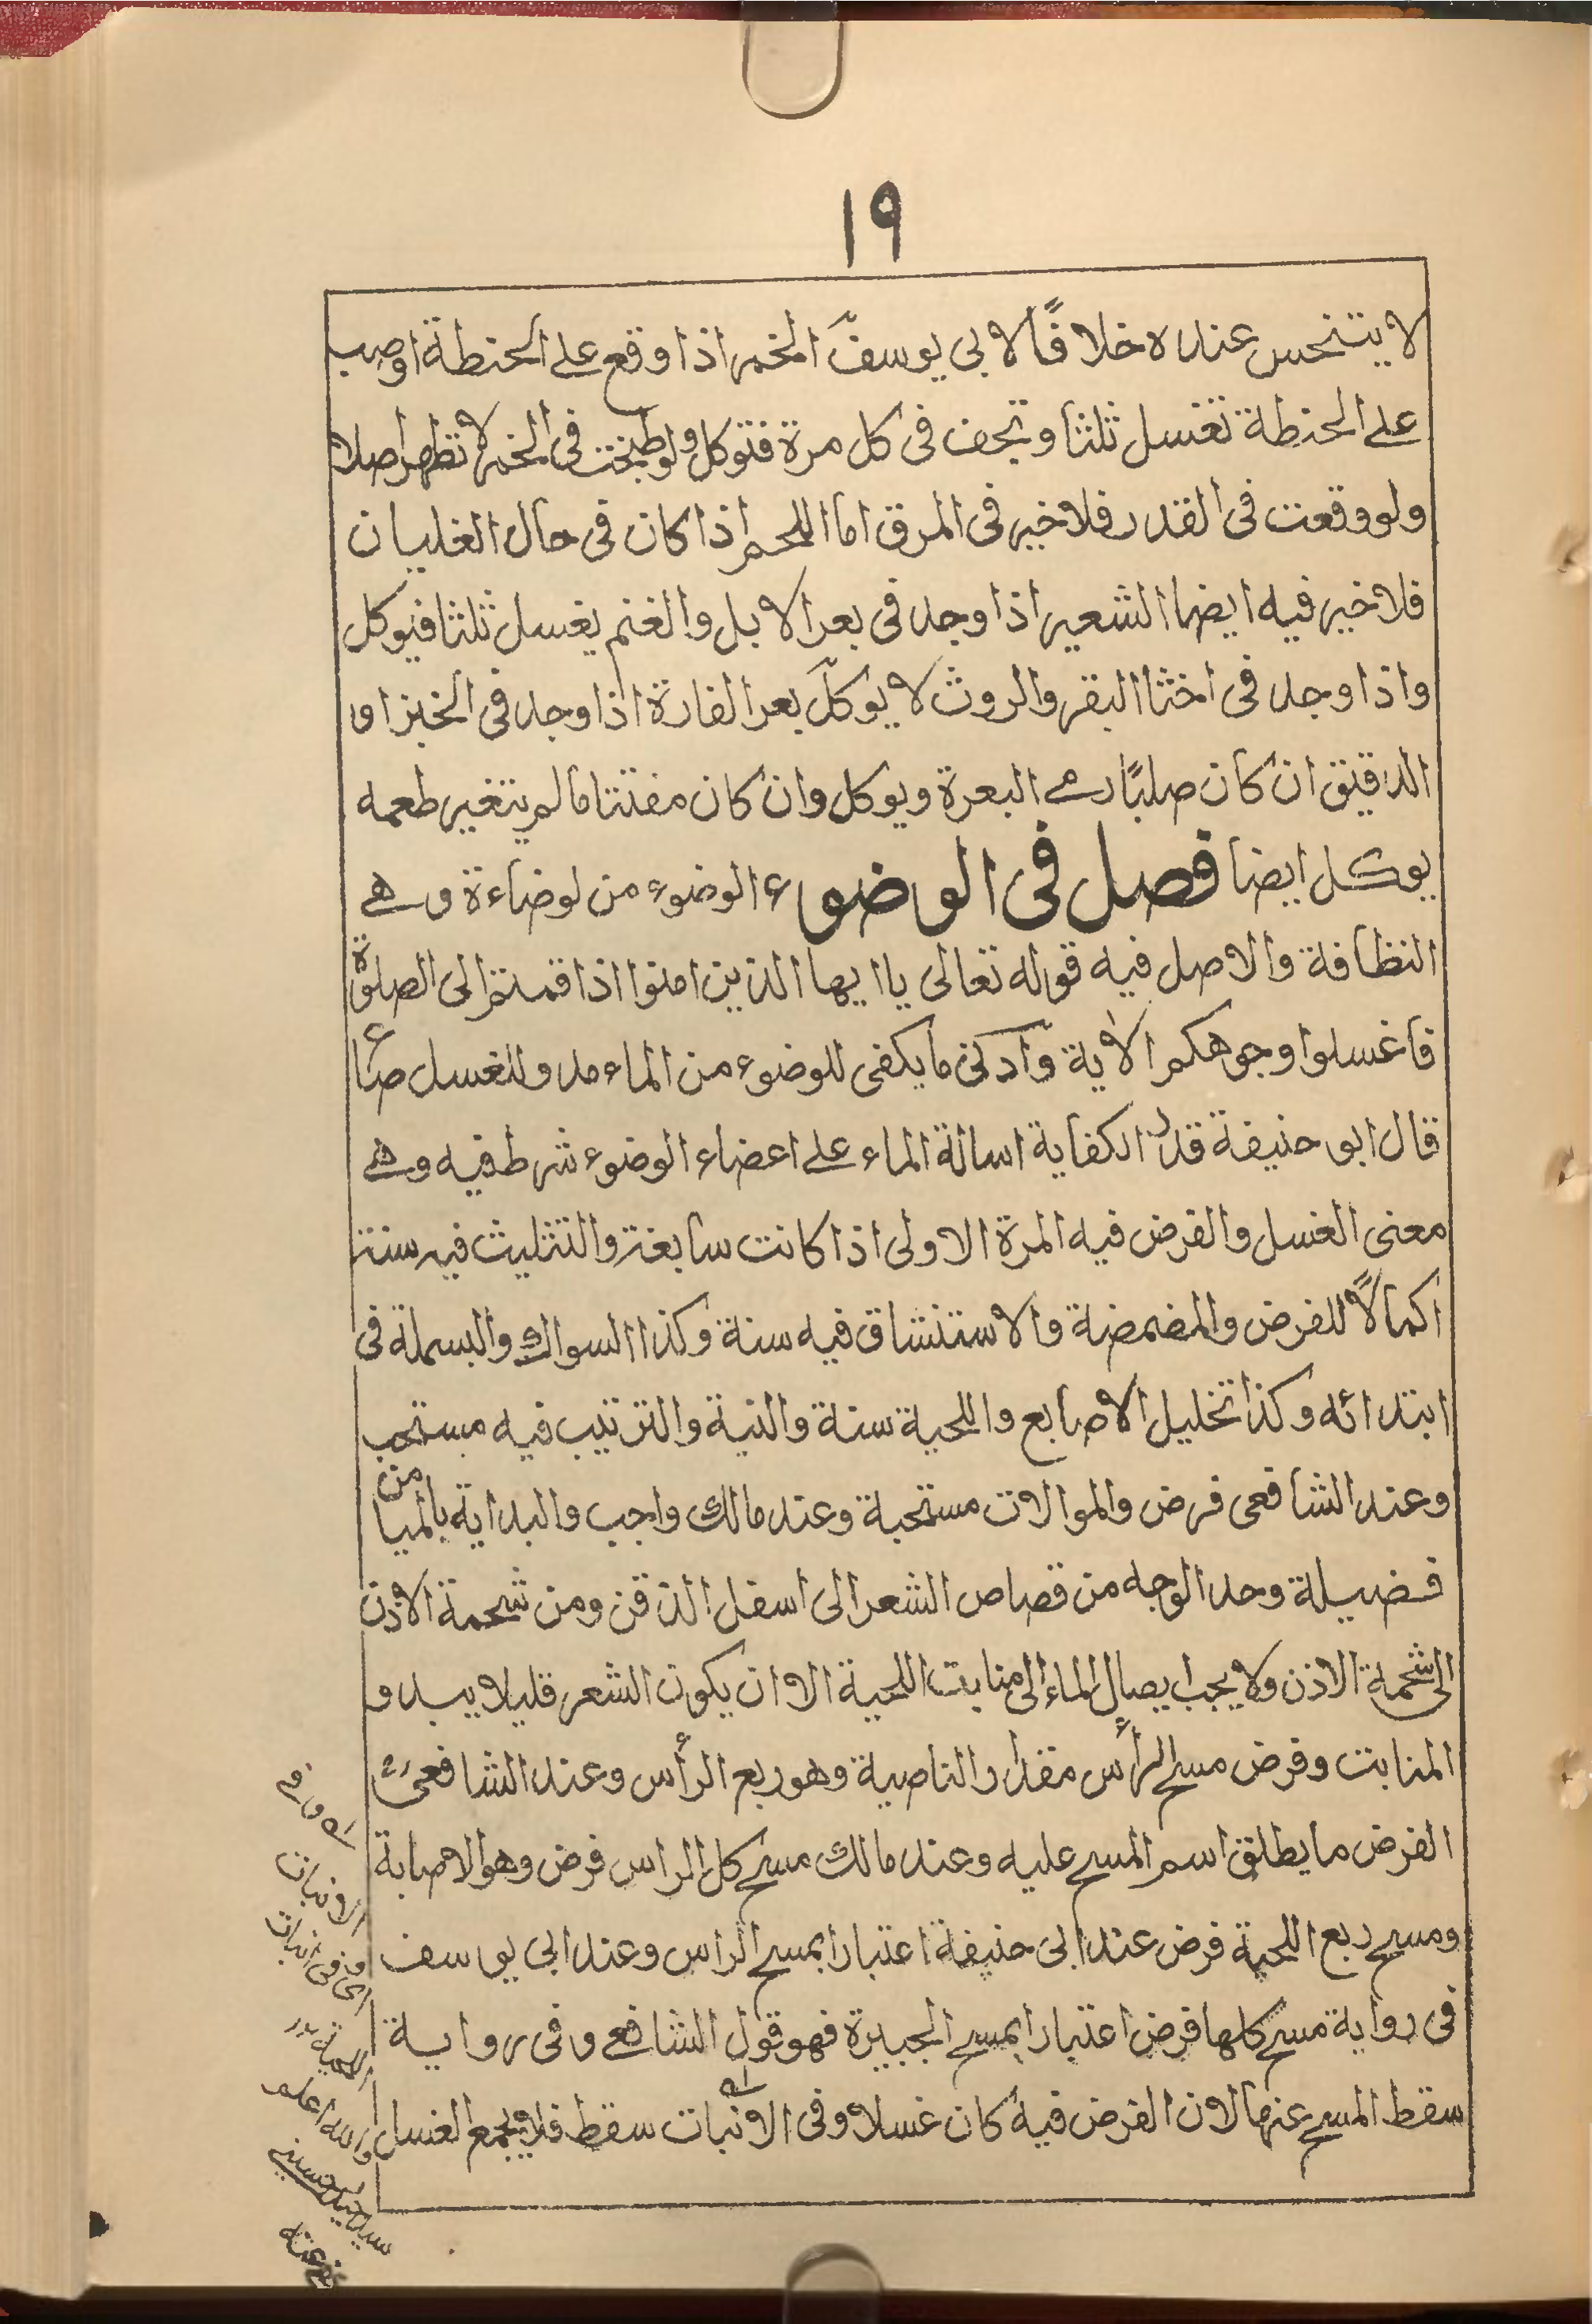 ١٩
لا يتنجس عنده خلافًا لابى يوسفؒ الخمر اذا وقع على الحنطة او صب
على الحنطة تغسل ثلثا وتجف فى كل مرة فتوكل ولو طبخت فى الخمر لا تطهر اصلا
ولو وقعت فى القدر فلا خير فى المرق اما اللحم اذا كان فى حال الغليان
فلا خير فيه ايضا الشعير اذا وجد فى بعر الابل والغنم يغسل ثلثا فيوكل
واذا وجد فى اخثا البقر والروث لا يوكل بعر الفارة اذا وجد فى الخبز او
الدقيق ان كان صلبًا رمى البعرة ويوكل وان كان مفتتا ما لم يتغير طعمه
يوكل ايضا فصل فى الوضوء الوضوء من لوضاءة وهى
النظافة والاصل فيه قوله تعالى يا ايها الذين امنوا اذا قمتم الى الصلوة
فاغسلوا وجوهكم الاية وادنى ما يكفى للوضوء من الماء مد وللغسل صاع
قال ابو حنيفة قدر الكفاية اسالة الماء على اعضاء الوضوء شرط فيه وهى
معنى الغسل والفرض فيه المرة الاولى اذا كانت سابغة والتثليث فيه سنة
اكمالًا للفرض والمضمضة والاستنشاق فيه سنة وكذا السواك والبسملة فى
ابتدائه وكذا تخليل الاصابع واللحية سنة والنية والترتيب فيه مستحب
وعند الشافعى فرض والموالات مستحبة وعند مالك واجب والبداية بالميامن
فضيلة وحد الوجه من قصاص الشعر الى اسفل الذقن ومن شحمة الاذن
الى شحمة الاذن ولا يجب ايصال الماء الى منابت اللحية الا ان يكون الشعر قليلا يبدو
المنابت وفرض مسح الرأس مقدار الناصية وهو ربع الرأس وعند الشافعىؒ
الفرض ما يطلق اسم المسح عليه وعند مالك مسح كل الراس فرض وهو الاصابة
ومسح ربع اللحية فرض عند ابى حنيفة اعتبارا بمسح الراس وعند ابى يوسف
فى رواية مسح كلها فرض اعتبارا بمسح الجبيرة فهو قول الشافعى وفى رواية
سقط المسح عنها لان الفرض فيه كان غسلا وفى الانبات سقط فلا يجمع الغسل
الانبات
اى فى
اللحية
والله اعلم
سيد